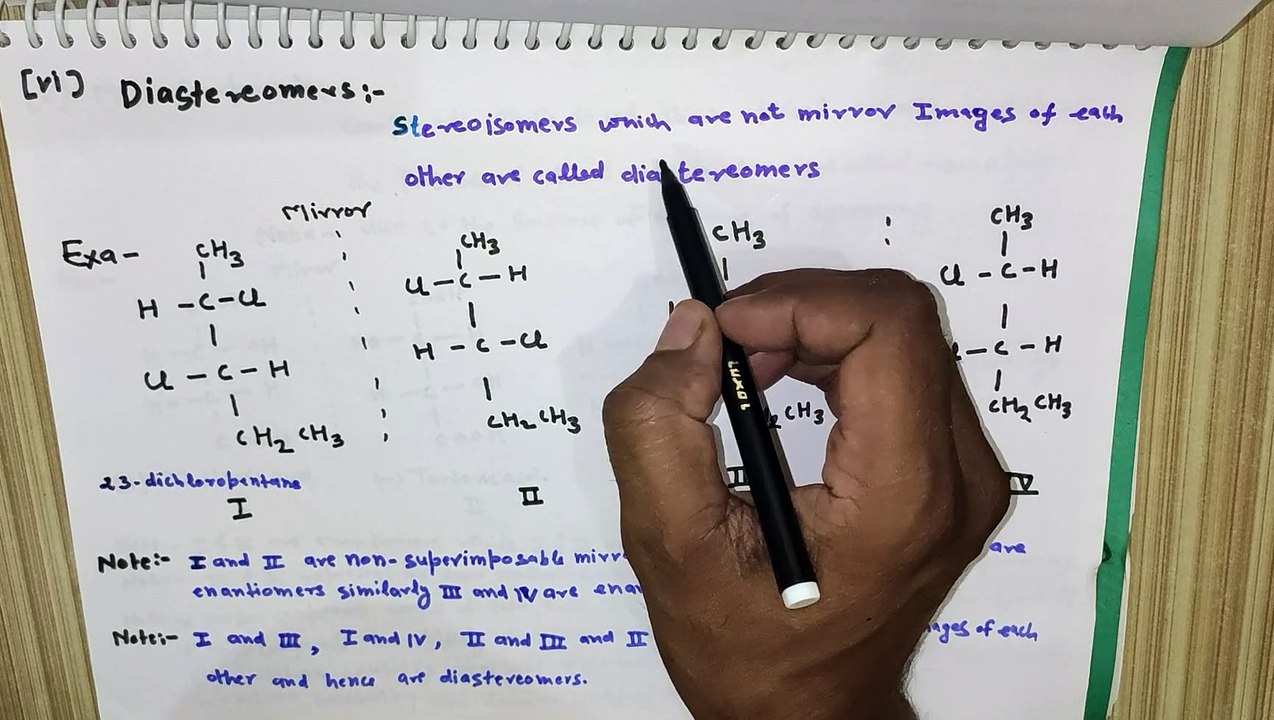 [vi) Diastereomers:-
Stereoisomers which are not mirror Images of each
other are called diastereomers
Mirror
Exa- CH3 CH3 CH3 CH3
H - C - Cl Cl - C - H Cl - C - H
Cl - C - H H - C - Cl - C - H
CH2 CH3 CH2 CH3 CH3 CH2 CH3
23-dichloropentane
I II IV
Note:- I and II are non-superimposable are
enantiomers similarly III and IV are
Note:- I and III, I and IV, II and III and II of each
other and hence are diastereomers.
LUXOR